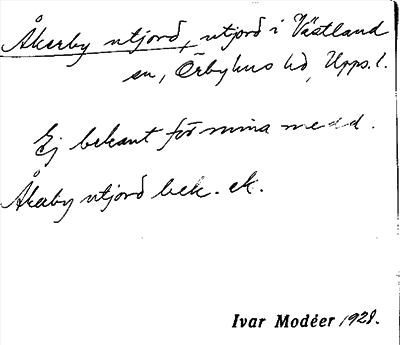 Åkerby utjord, utjord i Västland
sn, Örbyhus hd, Upps. l.
Ej bekant för mina medd.
Åkerby utjord bek. ek.
Ivar Modéer 1928.